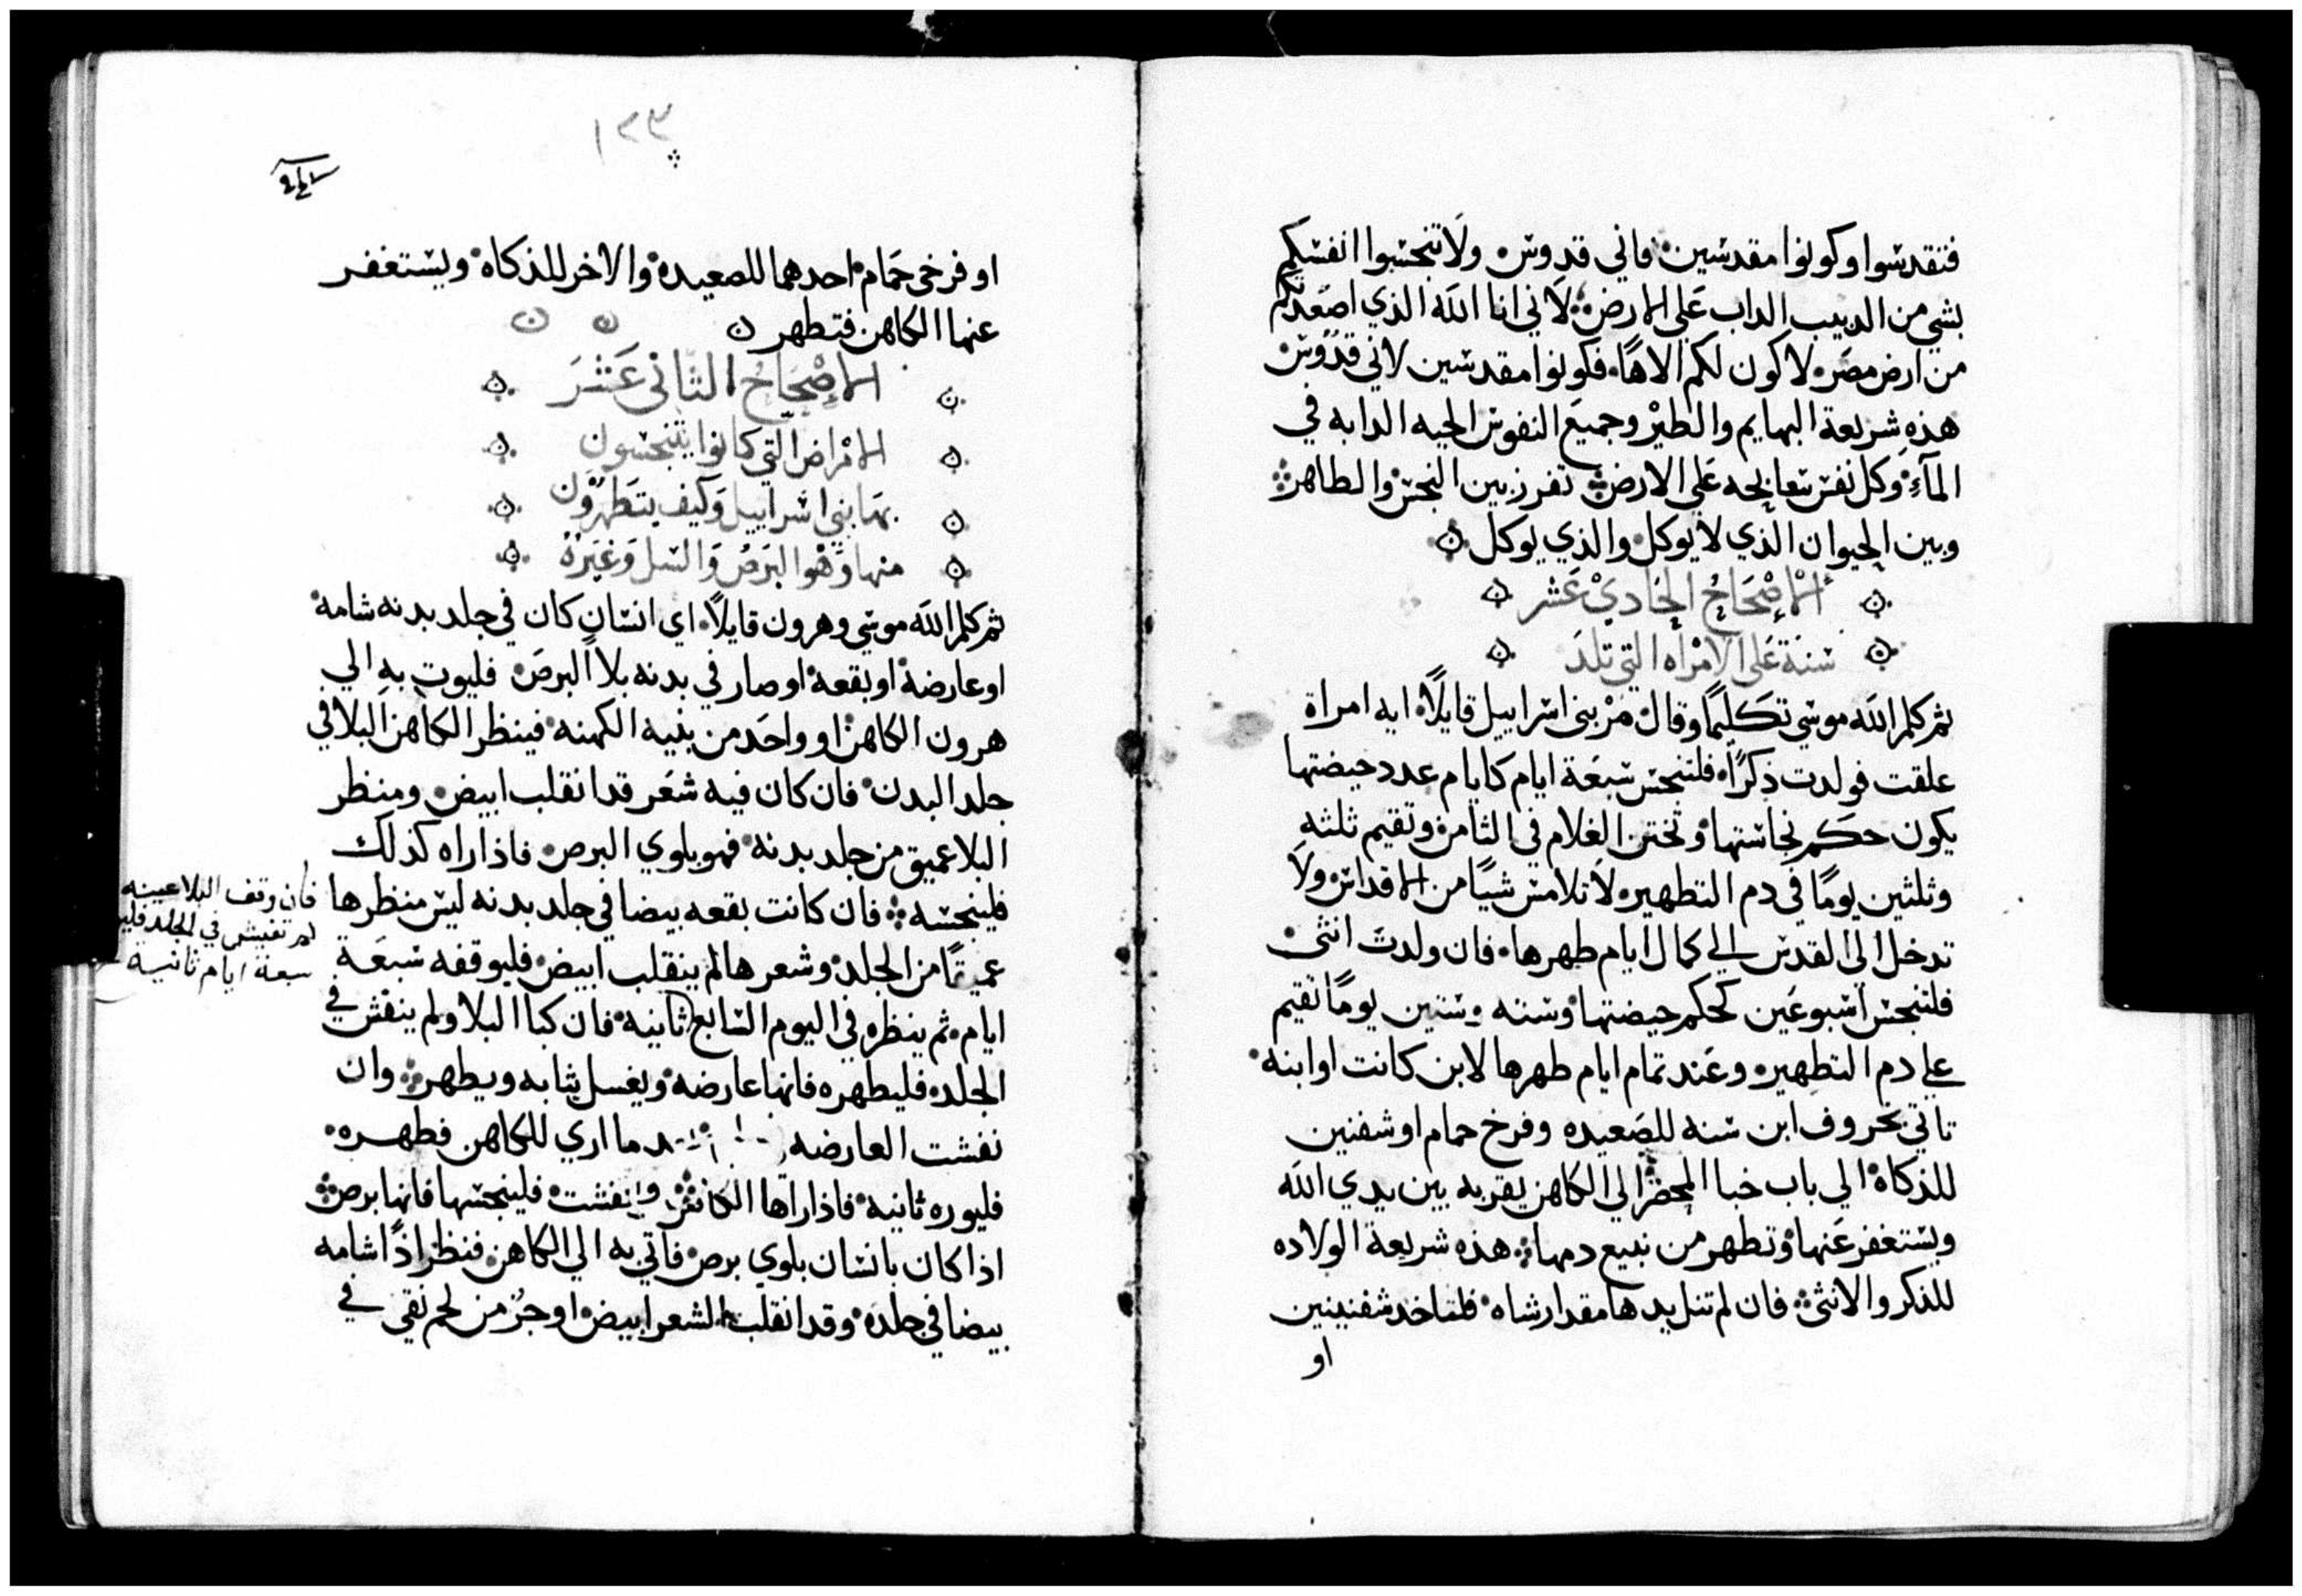 فتقدسوا وكونوا مقدسين فاني قدوس ولا تنجسوا انفسكم
بشي من الدبيب الداب على الارض لاني انا الله الذي اصعدتكم
من ارض مصر لاكون لكم الاهًا فكونوا مقدسين لاني قدوس
هذه شريعة البهايم والطير وجميع النفوس الحيه الدابه في
المآء وكل نفس تتعابجه على الارض تفرز بين النجس والطاهر
وبين الحيوان الذي لا يوكل والذي يوكل
الاصحاح الحادي عشر
سنة على الامراه التي تلد
ثم كلم الله موسي تكليمًا وقال مر بني اسراييل قايلًا ايه امراة
علقت فولدت ذكرًا فلتنجس سبعة ايام كايام عدد حيضتها
يكون حكم نجاستها وتختن الغلام في الثامن وتقيم ثلثه
وثلثين يومًا في دم التطهير لا تلامس شيًا من الاقداس ولا
تدخل الى القدس الي كمال ايام طهرها فان ولدت انثى
فلتنجس اسبوعين كحكم حيضتها وسته وستين يومًا تقيم
علي دم التطهير وعند تمام ايام طهرها لابن كانت او ابنه
تاتي بخروف ابن سنه للصعيده وفرخ حمام او شفنين
للذكاة الي باب خبا المحضر الى الكاهن يقربه بين يدي الله
ويستغفر عنها وتطهر من نبيع دمها هذه شريعة الولاده
للذكر والانثى فان لم تنل يدها مقدار شاه فلتاخد شفنينين
او
١٢٣
او فرخي حمام احدهما للصعيده والاخر للذكاة ويستغفر
عنها الكاهن فتطهر
الاصحاح الثاني عشر
الامراض التي كانوا يتنجسون
بها بني اسراييل وكيف يتطهرون
منها وهو البرص والسل وغيره
ثم كلم الله موسي وهرون قايلًا اي انسان كان في جلد بدنه شامه
او عارضة او بقعه او صار في بدنه بلا البرص فليوت به الي
هرون الكاهن او واحد من بنيه الكهنه فينظر الكاهن البلا في
جلد البدن فان كان فيه شعر قد انقلب ابيض ومنظر
البلا عميق من جلد بدنه فهو بلوي البرص فاذا راه كذلك
فلينجسه فان كانت بقعه بيضا في جلد بدنه ليس منظرها
عميقًا من الجلد وشعرها لم ينقلب ابيض فليوقفه سبعة
ايام ثم ينظره في اليوم السابع ثانيه فان كبا البلا ولم ينفش في
الجلد فليطهره فانها عارضه ويغسل ثيابه ويطهر وان
نفشت العارضه ما اري للكاهن فطهره
فليوره ثانيه فاذا راها الكاهن وانفشت فلينجسها فانها برص
اذا كان بانسان بلوي برص فاتي به الي الكاهن فنظر اذًا شامه
بيضا في جلده وقد انقلب الشعر ابيض او جز من لحم نقي في
فان وقف البلا عينه
لم تفيش في الجلد
سبعة ايام ثانيه